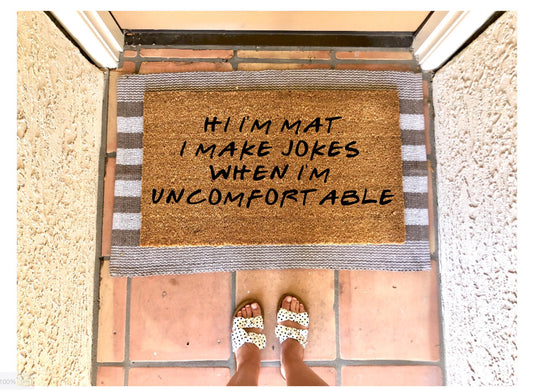 HI I'M MAT
I MAKE JOKES
WHEN I'M
UNCOMFORTABLE
100%